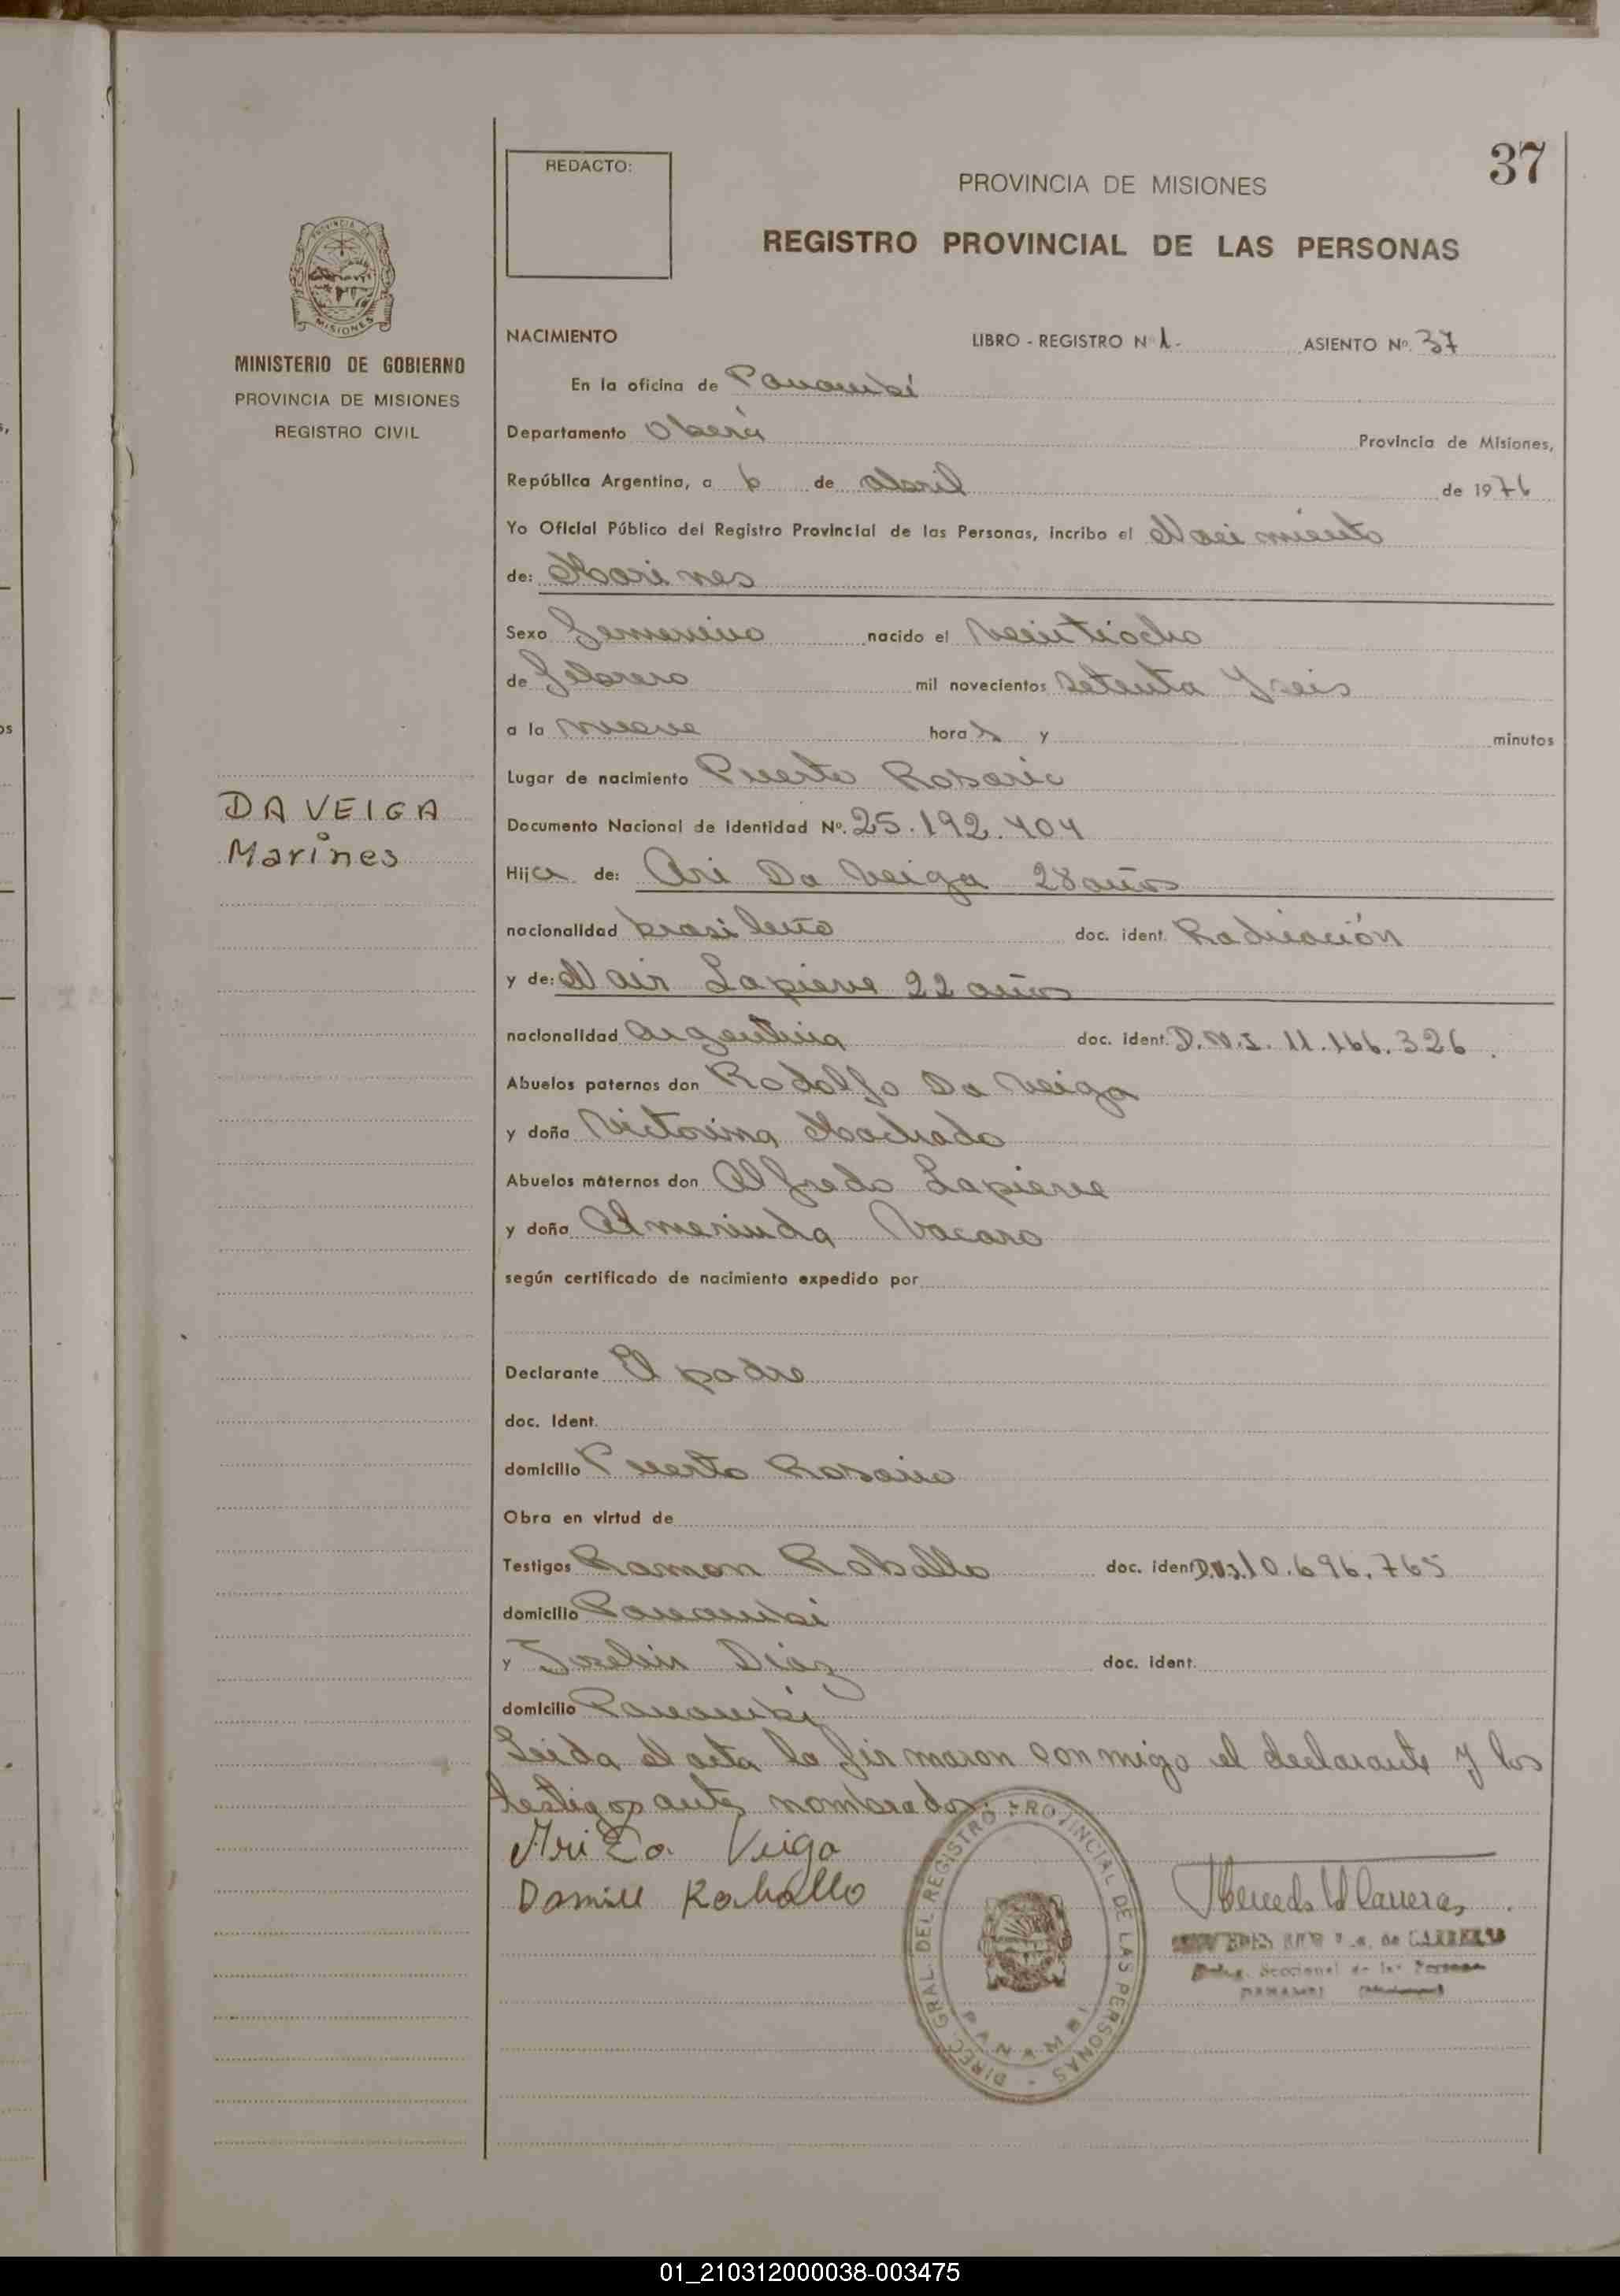 37
REDACTO:
PROVINCIA DE MISIONES
REGISTRO PROVINCIAL DE LAS PERSONAS
MISIONES
MINISTERIO DE GOBIERNO
PROVINCIA DE MISIONES
REGISTRO CIVIL
DA VEIGA
Marines
NACIMIENTO LIBRO - REGISTRO Nº 1- ASIENTO Nº. 37
En la oficina de Panambí
Departamento Oberá Provincia de Misiones,
República Argentina, a 6 de Abril de 1976
Yo Oficial Público del Registro Provincial de las Personas, incribo el Nacimiento
de: Marines
Sexo Femenino nacido el veintiocho
de Febrero mil novecientos setenta y seis
a la nueve horas y minutos
Lugar de nacimiento Puerto Rosario
Documento Nacional de Identidad Nº. 25.192.404
Hija de: Ari Da Veiga 28 años
nacionalidad brasileño doc. ident. Radicación
y de: Nair Lapierre 22 años
nacionalidad Argentina doc. ident. D.N.I. 11.166.326.
Abuelos paternos don Rodolfo Da Veiga
y doña Victorina Machado
Abuelos maternos don Alfredo Lapierre
y doña Almerinda Vacaro
según certificado de nacimiento expedido por
Declarante El padre
doc. Ident.
domicilio Puerto Rosario
Obra en virtud de
Testigos Ramon Roballo doc. ident D.N.I. 10.696.765
domicilio Panambi
y Diaz doc. ident.
domicilio Panambi
Leida el acta la firmaron conmigo el declarante y los
testigos antes nombrados.
Ari Da Veiga
Roballo
DIREC. GRAL. DEL REGISTRO PROVINCIAL DE LAS PERSONAS - PANAMBI
de CARRERAS
Seccional de las Personas
PANAMBI
01_210312000038-003475